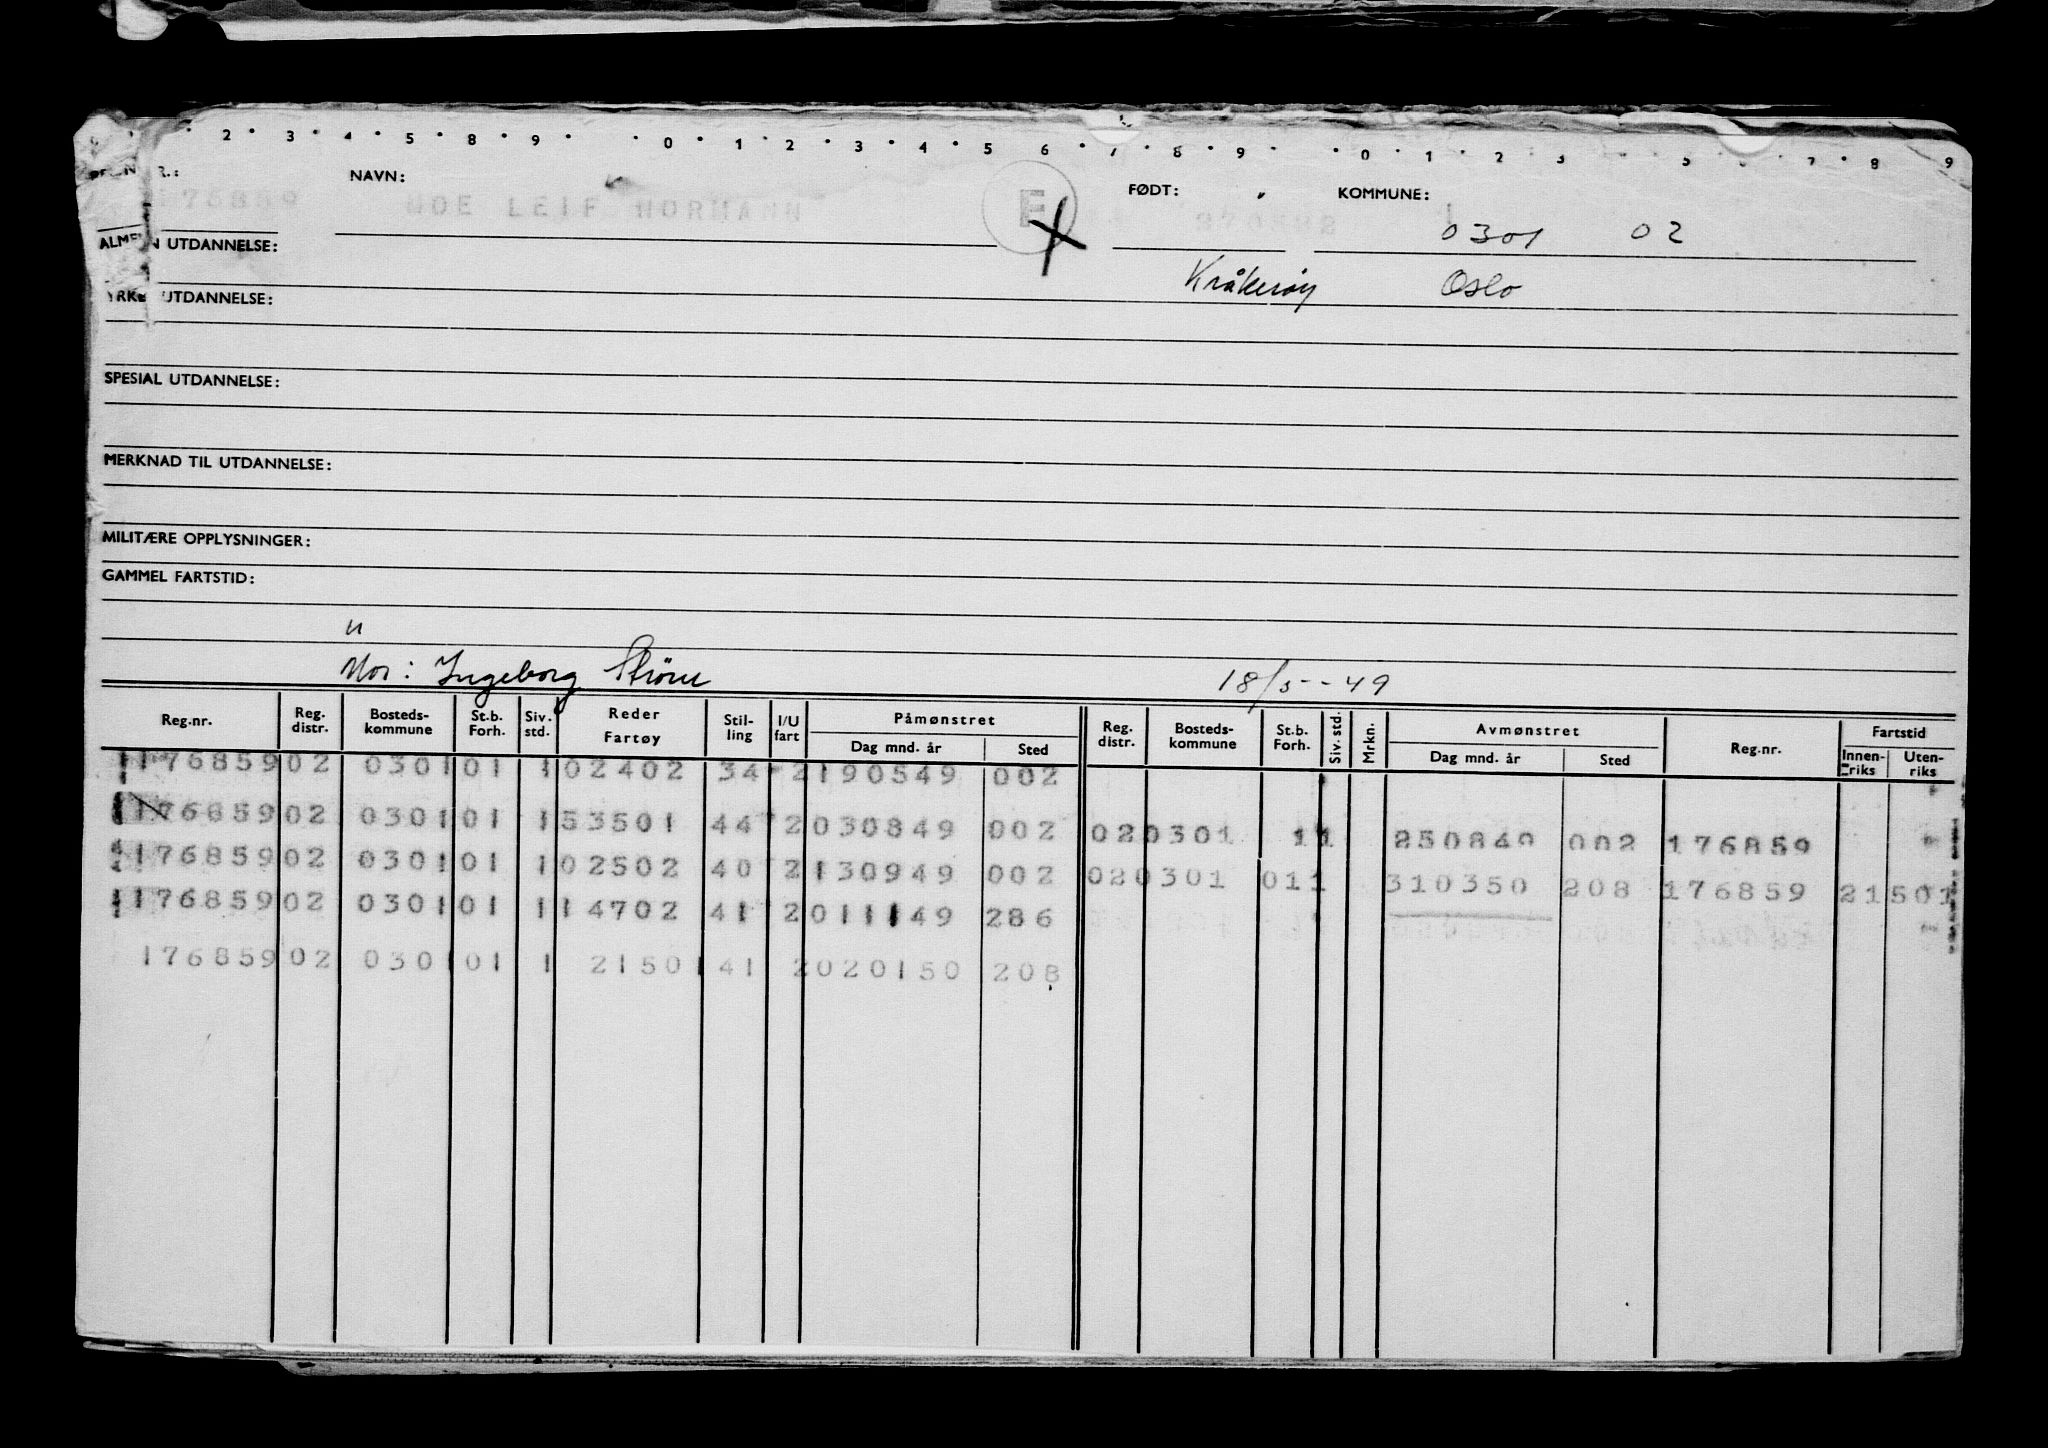 2 · 3 · 4 · 5 · 8 · 9 · 0 · 1 · 2 · 3 · 4 · 5 6 · 7 · 8 · 9 · 0 · 1 · 2 · 3 5 · 7 · 8 9
NAVN: FØDT: KOMMUNE:
176859 MOE LEIF NORMANN F
0301 02
UTDANNELSE:
Kråkerøy Oslo
UTDANNELSE:
SPESIAL UTDANNELSE:
MERKNAD TIL UTDANNELSE:
MILITÆRE OPPLYSNINGER:
GAMMEL FARTSTID:
Mor: Ingeborg Strøm 18/5-49
Reg.nr. Reg. distr. Bosteds-kommune St.b. Forh. Siv. std. Reder Fartøy Stil-ling I/U fart Påmønstret Dag mnd. år Sted Reg. distr. Bosteds-kommune St.b. Forh. Siv. std. Mrkn. Avmønstret Dag mnd. år Sted Reg.nr. Fartstid Innen-riks Uten-riks
176859 02 0301 01 1 02402 34 2 190549 002
176859 02 0301 01 1 53501 44 2 030849 002 02 0301 11 250849 002 176859
176859 02 0301 01 1 02502 40 2 130949 002 02 0301 01 1 310350 208 176859 21501
176859 02 0301 01 1 14702 41 2 011149 286
176859 02 0301 01 1 21501 41 2 020150 208